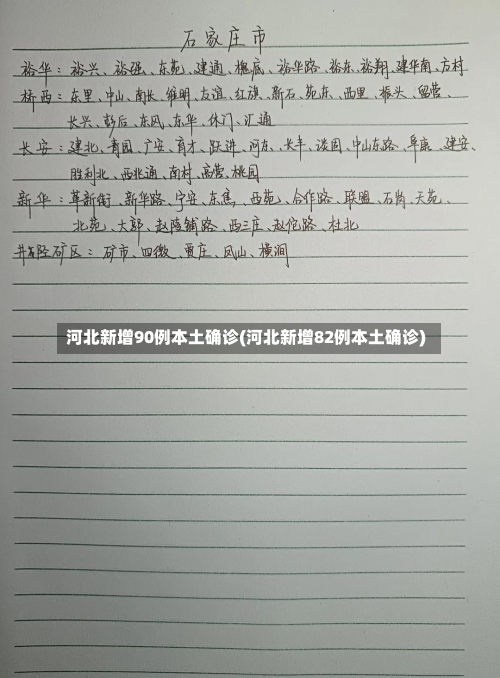 石家庄市
裕华：裕兴、裕强、东苑、建通、槐底、裕华路、裕东、裕翔、建华南、方村
桥西：东里、中山、南长、维明、友谊、红旗、新石、苑东、西里、振头、留营、
长兴、彭后、东风、东华、休门、汇通
长安：建北、青园、广安、育才、跃进、河东、长丰、谈固、中山东路、阜康、建安、
胜利北、西兆通、南村、高营、桃园
新华：革新街、新华路、宁安、东焦、西苑、合作路、联盟、石岗、天苑、
北苑、大郭、赵陵铺路、西三庄、赵佗路、杜北
井陉矿区：矿市、四微、贾庄、凤山、横涧
河北新增90例本土确诊(河北新增82例本土确诊)